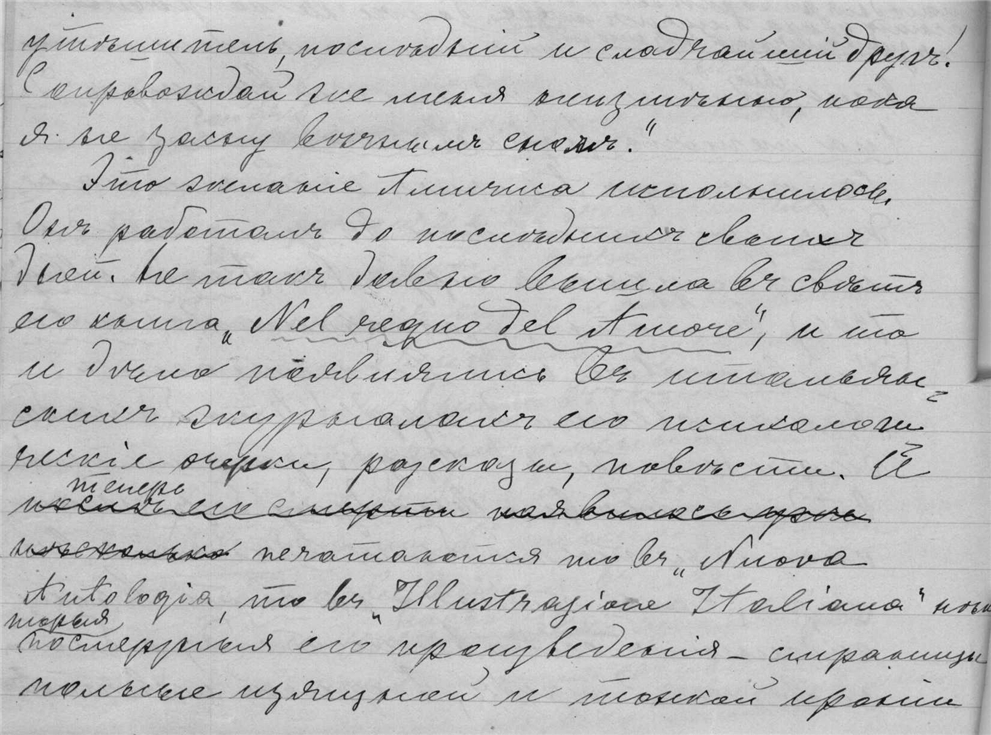 утѣшитель, послѣдній и сладчайшій другъ!
Сопровождай же меня жизненно, пока
я не засну вѣчнымъ сномъ."
Это желаніе Амичиса исполнилось.
Онъ работалъ до послѣднихъ своихъ
дней. Не такъ давно вышла въ свѣтъ
его книга „Nel regno del Amore", и то
и дѣло появлялись въ итальян-
скихъ журналахъ его психологи
ческіе очерки, разсказы, повѣсти. И
теперь
послѣ его смерти появилось уже
нѣсколько печатаются то въ „Nuova
Antologia, то въ „Illustrazione Italiana" нѣко
торыя
посмертныя его произведенія – страницы
полныя изящной и тонкой ироніи